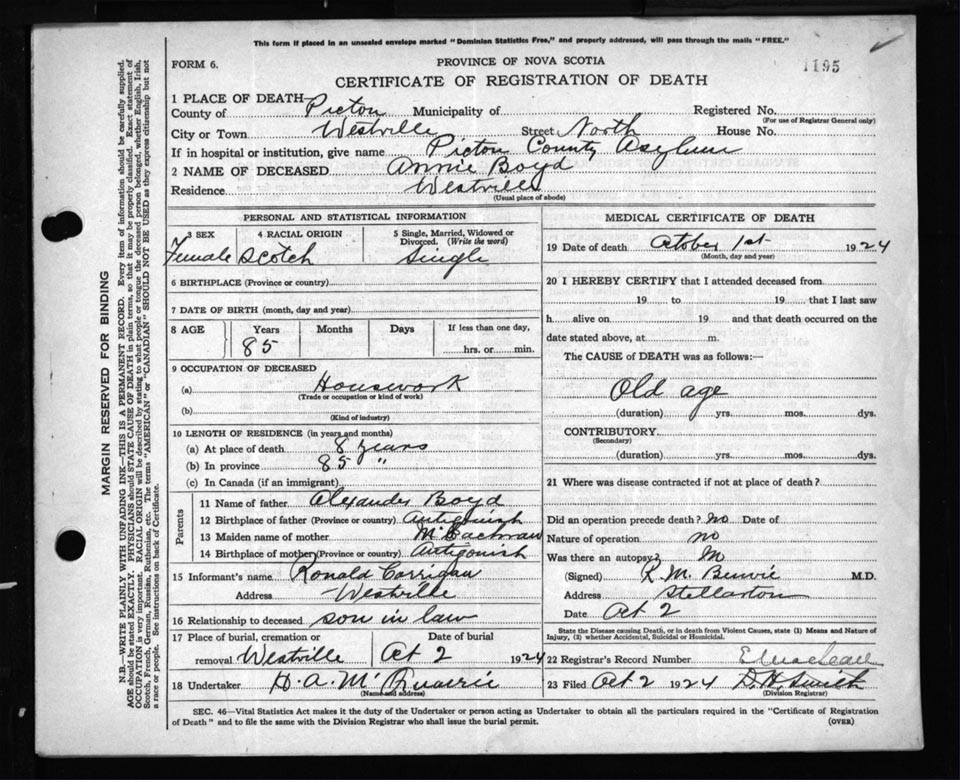 This form if placed in an unsealed envelope marked "Dominion Statistics Free," and properly addressed, will pass through the mails "FREE."
FORM 6.
PROVINCE OF NOVA SCOTIA
1195
CERTIFICATE OF REGISTRATION OF DEATH
1 PLACE OF DEATH
County of Pictou Municipality of Registered No.
(For use of Registrar General only)
City or Town Westville Street North House No.
If in hospital or institution, give name Pictou County Asylum
2 NAME OF DECEASED Annie Boyd
Residence Westville
(Usual place of abode)
PERSONAL AND STATISTICAL INFORMATION
3 SEX 4 RACIAL ORIGIN 5 Single, Married, Widowed or Divorced. (Write the word)
Female Scotch Single
6 BIRTHPLACE (Province or country)
7 DATE OF BIRTH (month, day and year)
8 AGE Years Months Days If less than one day,
85 hrs. or min.
9 OCCUPATION OF DECEASED
(a) Housework
(Trade or occupation or kind of work)
(b)
(Kind of industry)
10 LENGTH OF RESIDENCE (in years and months)
(a) At place of death 8 years
(b) In province 85 "
(c) In Canada (if an immigrant)
Parents
11 Name of father Alexander Boyd
12 Birthplace of father (Province or country) Antigonish
13 Maiden name of mother
14 Birthplace of mother (Province or country) Antigonish
15 Informant's name Ronald Corrigan
Address Westville
16 Relationship to deceased son in law
17 Place of burial, cremation or Date of burial
removal Westville Oct 2 1924
18 Undertaker D. A. Mc
(Name and address)
MEDICAL CERTIFICATE OF DEATH
19 Date of death October 1st 1924
(Month, day and year)
20 I HEREBY CERTIFY that I attended deceased from
19 to 19 that I last saw
h alive on 19 and that death occurred on the
date stated above, at m.
The CAUSE of DEATH was as follows:—
Old age
(duration) yrs. mos. dys.
CONTRIBUTORY
(Secondary)
(duration) yrs. mos. dys.
21 Where was disease contracted if not at place of death?
Did an operation precede death? no Date of
Nature of operation no
Was there an autopsy? no
(Signed) M. Benvie M.D.
Address Stellarton
Date Oct 2
State the Disease causing Death, or in death from Violent Causes, state (1) Means and Nature of
Injury, (2) whether Accidental, Suicidal or Homicidal.
22 Registrar's Record Number
23 Filed Oct 2 1924 D. H. Smith
(Division Registrar)
SEC. 46—Vital Statistics Act makes it the duty of the Undertaker or person acting as Undertaker to obtain all the particulars required in the "Certificate of Registration
of Death" and to file the same with the Division Registrar who shall issue the burial permit. (OVER)
MARGIN RESERVED FOR BINDING
N.B.—WRITE PLAINLY WITH UNFADING INK—THIS IS A PERMANENT RECORD. Every item of information should be carefully supplied.
AGE should be stated EXACTLY. PHYSICIANS should STATE CAUSE OF DEATH in plain terms, so that it may be properly classified. Exact statement of
OCCUPATION is very important. RACIAL ORIGIN will be described by stating to what people or tongue the deceased person belonged, whether English, Irish,
Scotch, French, German, Russian, Ruthenian, etc. The terms "AMERICAN" or "CANADIAN" SHOULD NOT BE USED as they express citizenship but not
a race or people. See instructions on back of Certificate.